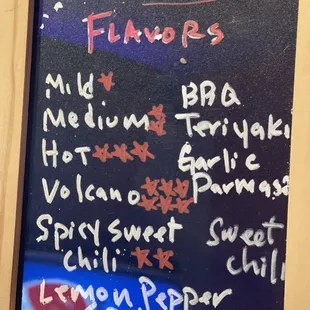 FLAVORS
Mild
Medium
HOT
Volcano
Spicy Sweet
Chili
Lemon Pepper
BBQ
Teriyaki
Garlic
Parmasa
Sweet
chili